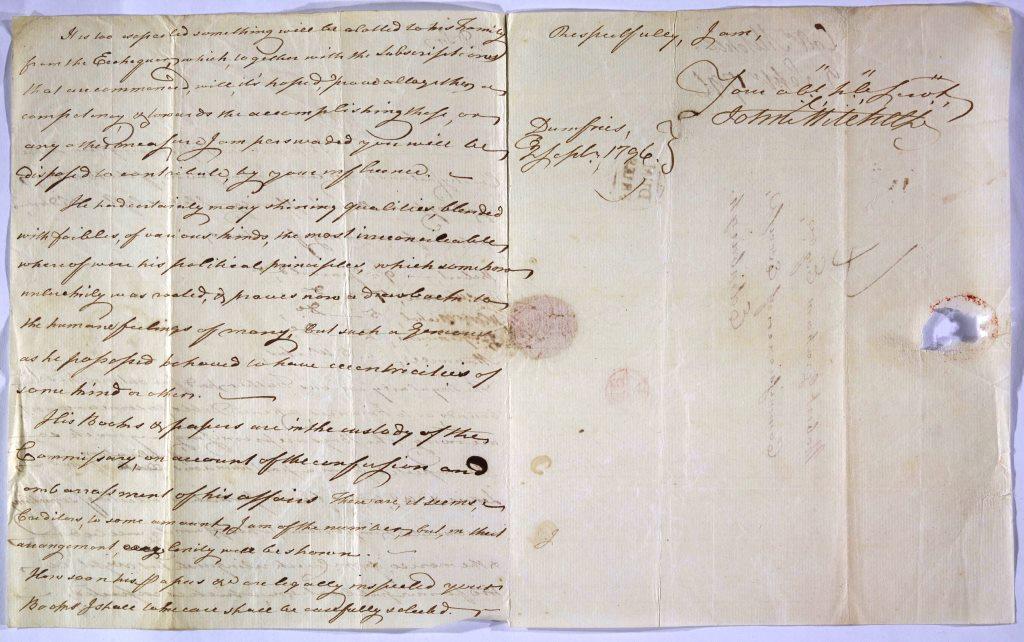 It is too expected something will be allotted to his Family
from the Exchequer, which, together with the Subscriptions
that are commenced, will it's hoped, prove altogether a
competency, & towards the accomplishing these, or
any other measure, I am perswaded you will be
disposed to contribute, by your influence.
He had certainly many shining qualities, blended
with foibles of various kinds, the most irreconcileable
whereof were his political principles, which somehow
unluckily was rooted, & proves now a drawback to
the humane feelings of many, But such a Genious
as he possessed behoved to have eccentricities of
some kind or other.
His Books & papers are in the custody of the
Commissary, on account of the confusion and
embarrassment of his affairs There are, it seems,
Creditors, to some amount, I am of the number, but, in that
arrangement, lenity will be shown.
How soon his Papers &c are legally inspected your
Books I shall take care shall be carefully selected.
Respectfully, I am,
Your obt. hle. Servt.
John Mitchell
Dumfries,
Sept. 1796
DUM
FRIES